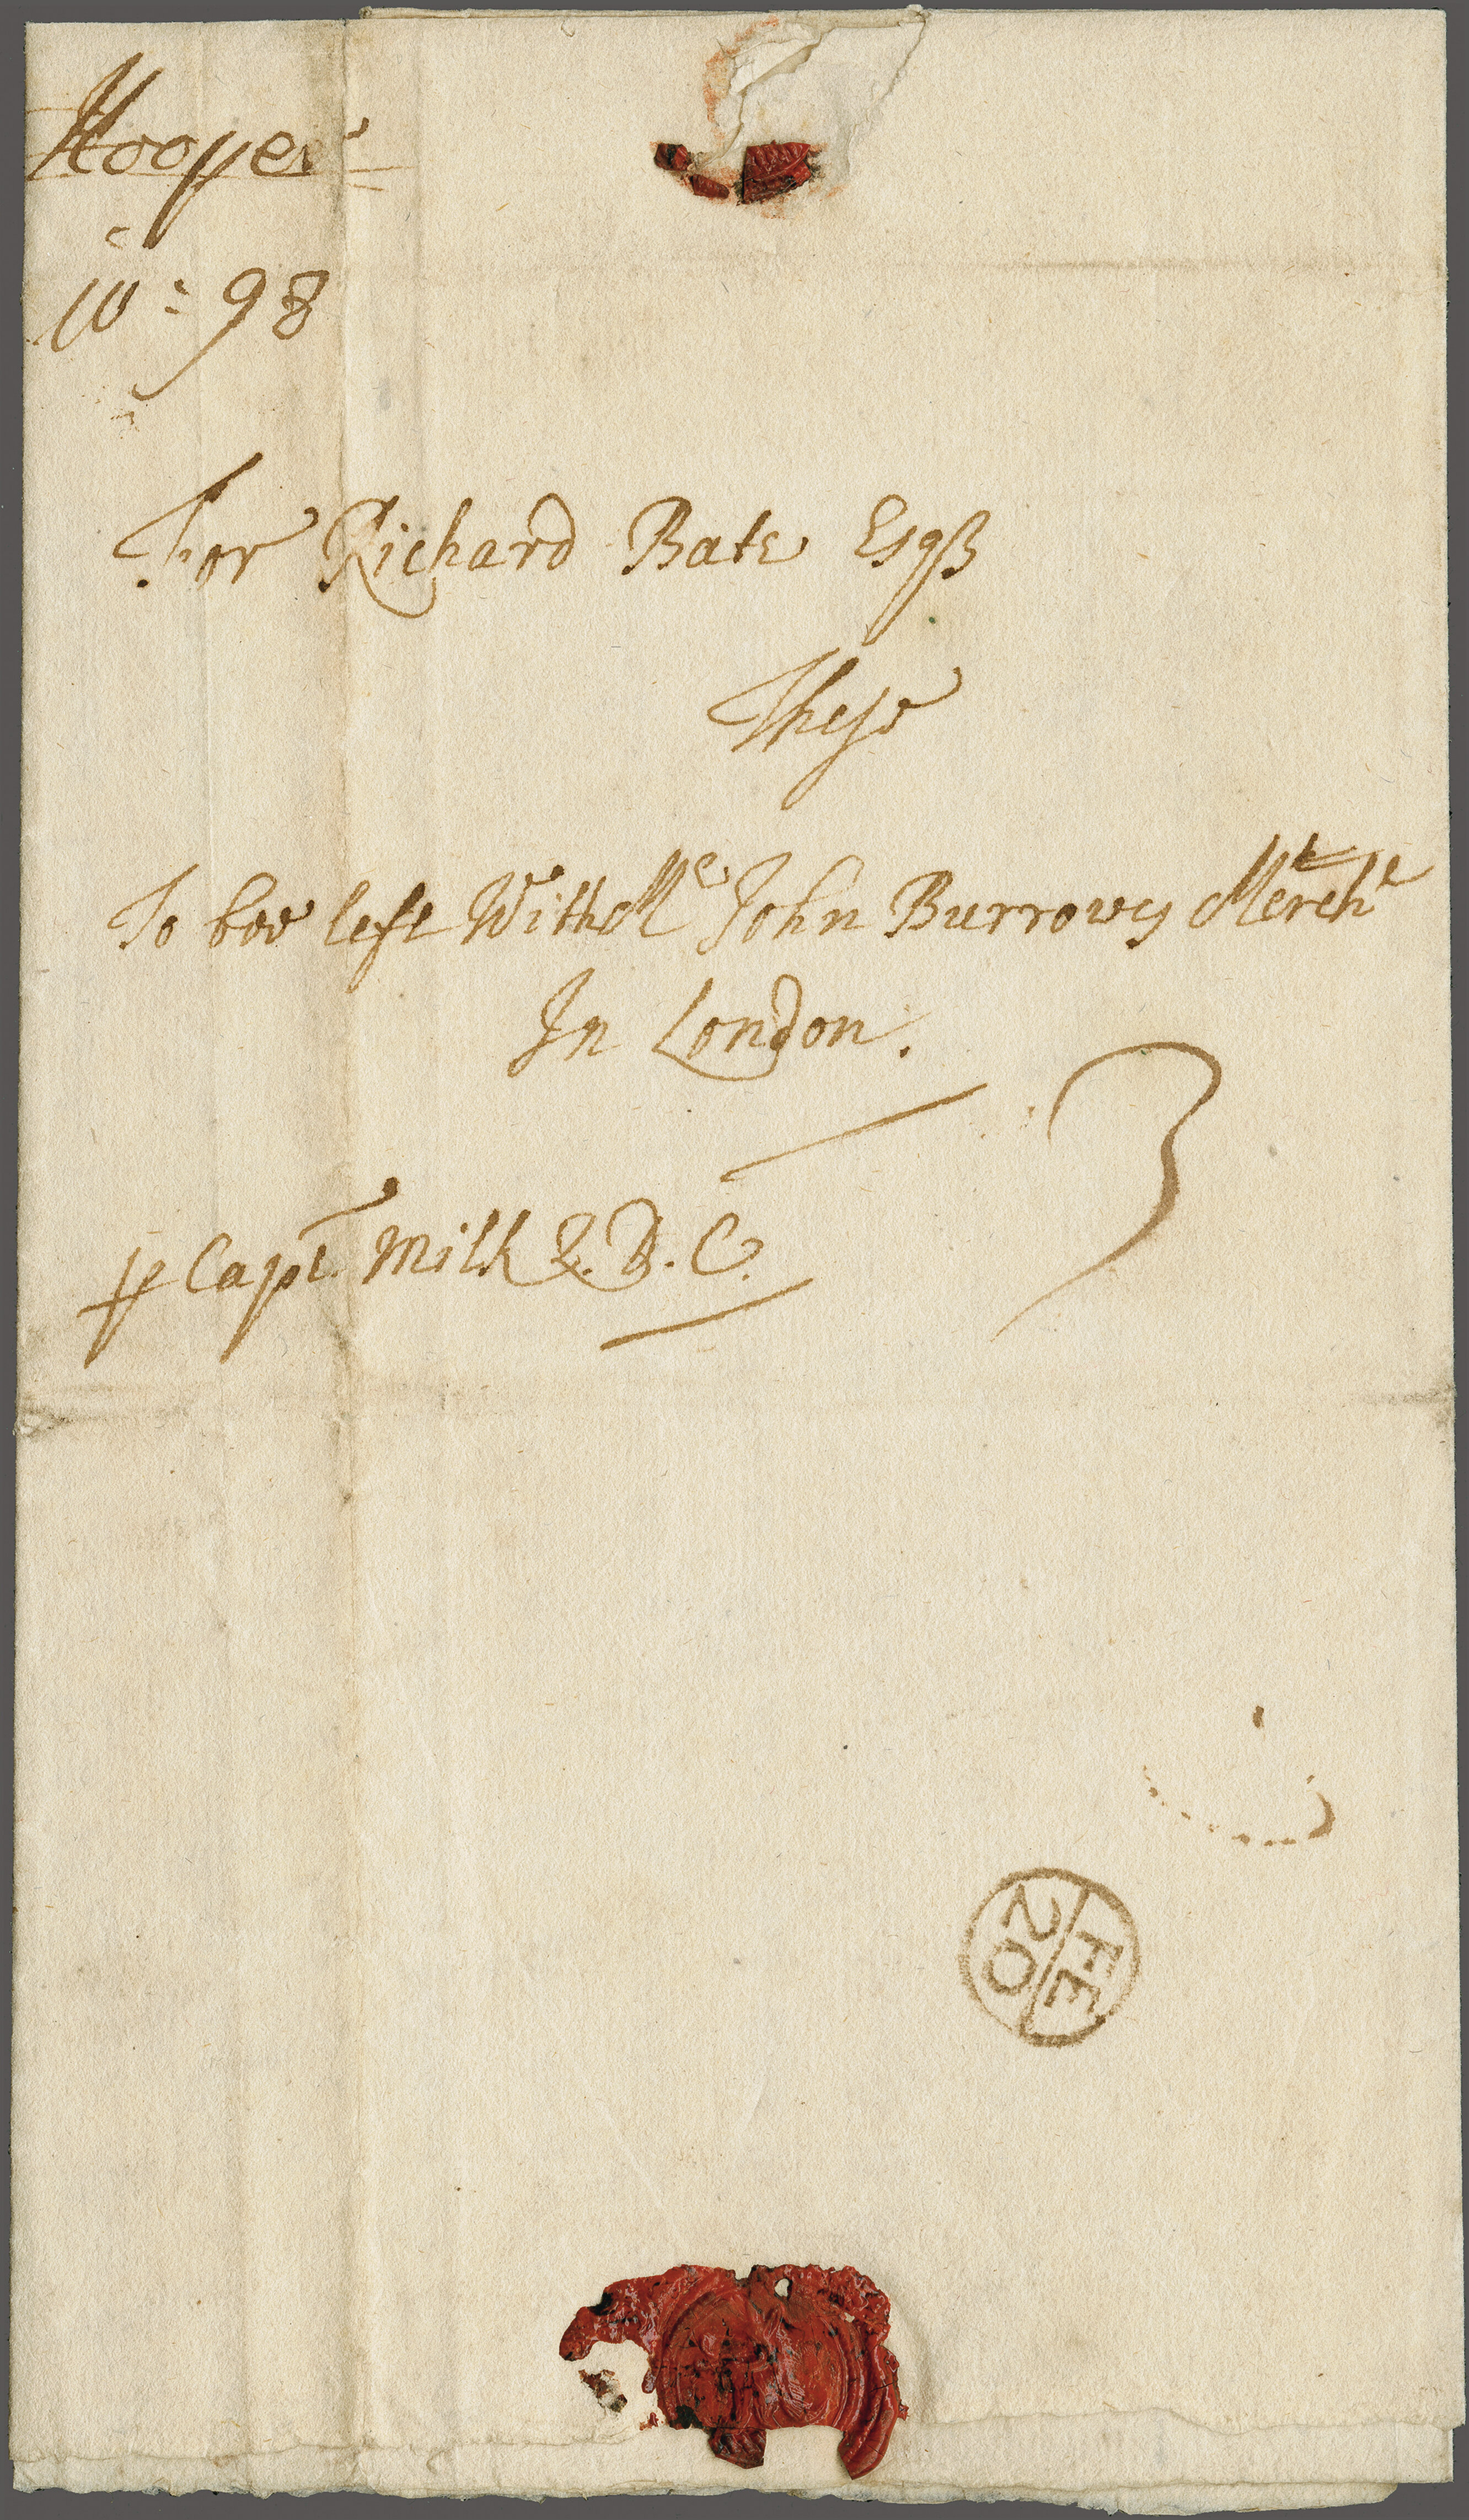 Hooper
10: 98
For Richard Bate Esqr
These
To bee left With Mr John Burrows Mercht
In London.
3
p Capt. Milk &. D. C.
FE
20